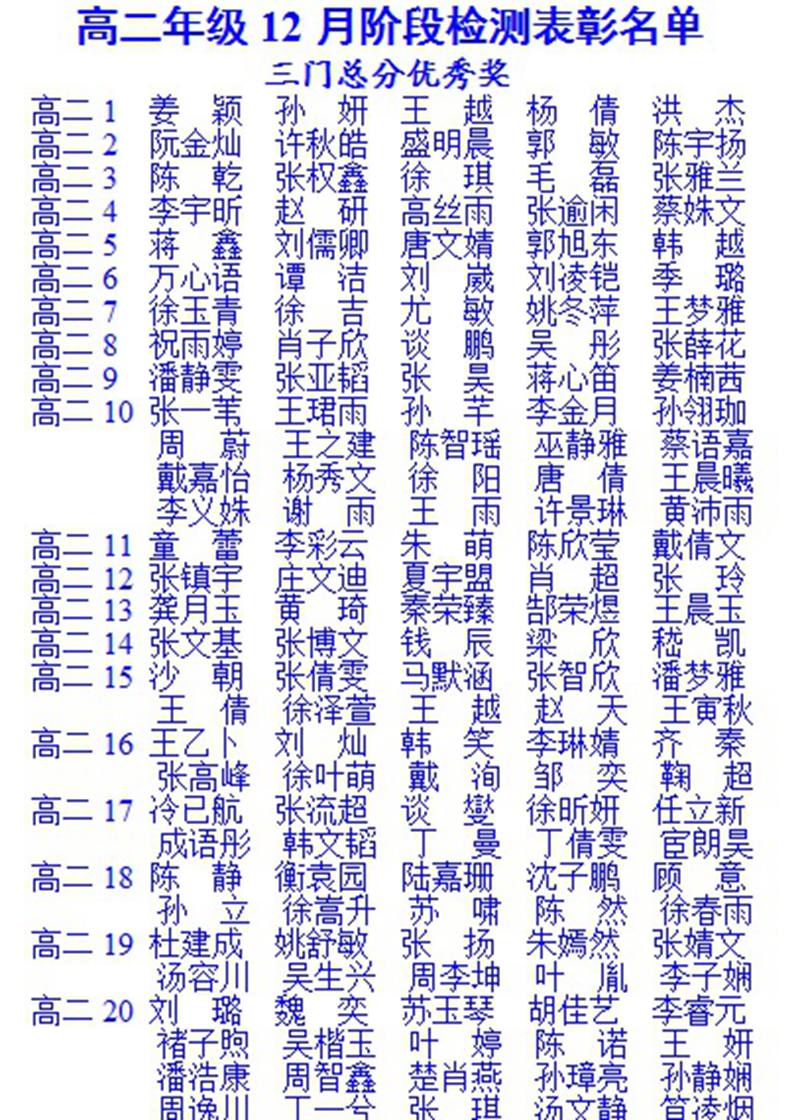 高二年级 12 月阶段检测表彰名单
三门总分优秀奖
高二 1 姜 颖 孙 妍 王 越 杨 倩 洪 杰
高二 2 阮金灿 许秋皓 盛明晨 郭 敏 陈宇扬
高二 3 陈 乾 张权鑫 徐 琪 毛 磊 张雅兰
高二 4 李宇昕 赵 研 高丝雨 张逾闲 蔡姝文
高二 5 蒋 鑫 刘儒卿 唐文婧 郭旭东 韩 越
高二 6 万心语 谭 洁 刘 崴 刘凌铠 季 璐
高二 7 徐玉青 徐 吉 尤 敏 姚冬萍 王梦雅
高二 8 祝雨婷 肖子欣 谈 鹏 吴 彤 张薛花
高二 9 潘静雯 张亚韬 张 昊 蒋心笛 姜楠茜
高二 10 张一苇 王珺雨 孙 芊 李金月 孙翎珈
周 蔚 王之建 陈智瑶 巫静雅 蔡语嘉
戴嘉怡 杨秀文 徐 阳 唐 倩 王晨曦
李义姝 谢 雨 王 雨 许景琳 黄沛雨
高二 11 童 蕾 李彩云 朱 萌 陈欣莹 戴倩文
高二 12 张镇宇 庄文迪 夏宇盟 肖 超 张 玲
高二 13 龚月玉 黄 琦 秦荣臻 郜荣煜 王晨玉
高二 14 张文基 张博文 钱 辰 梁 欣 嵇 凯
高二 15 沙 朝 张倩雯 马默涵 张智欣 潘梦雅
王 倩 徐泽萱 王 越 赵 天 王寅秋
高二 16 王乙卜 刘 灿 韩 笑 李琳婧 齐 秦
张高峰 徐叶萌 戴 洵 邹 奕 鞠 超
高二 17 冷已航 张流超 谈 燮 徐昕妍 任立新
成语彤 韩文韬 丁 曼 丁倩雯 宦朗昊
高二 18 陈 静 衡袁园 陆嘉珊 沈子鹏 顾 意
孙 立 徐嵩升 苏 啸 陈 然 徐春雨
高二 19 杜建成 姚舒敏 张 扬 朱嫣然 张婧文
汤容川 吴生兴 周李坤 叶 胤 李子娴
高二 20 刘 璐 魏 奕 苏玉琴 胡佳艺 李睿元
褚子煦 吴楷玉 叶 婷 陈 诺 王 妍
潘浩康 周智鑫 楚肖燕 孙璋亮 孙静娴
周逸川 丁一兮 张 琪 汤文静 笪凌烟